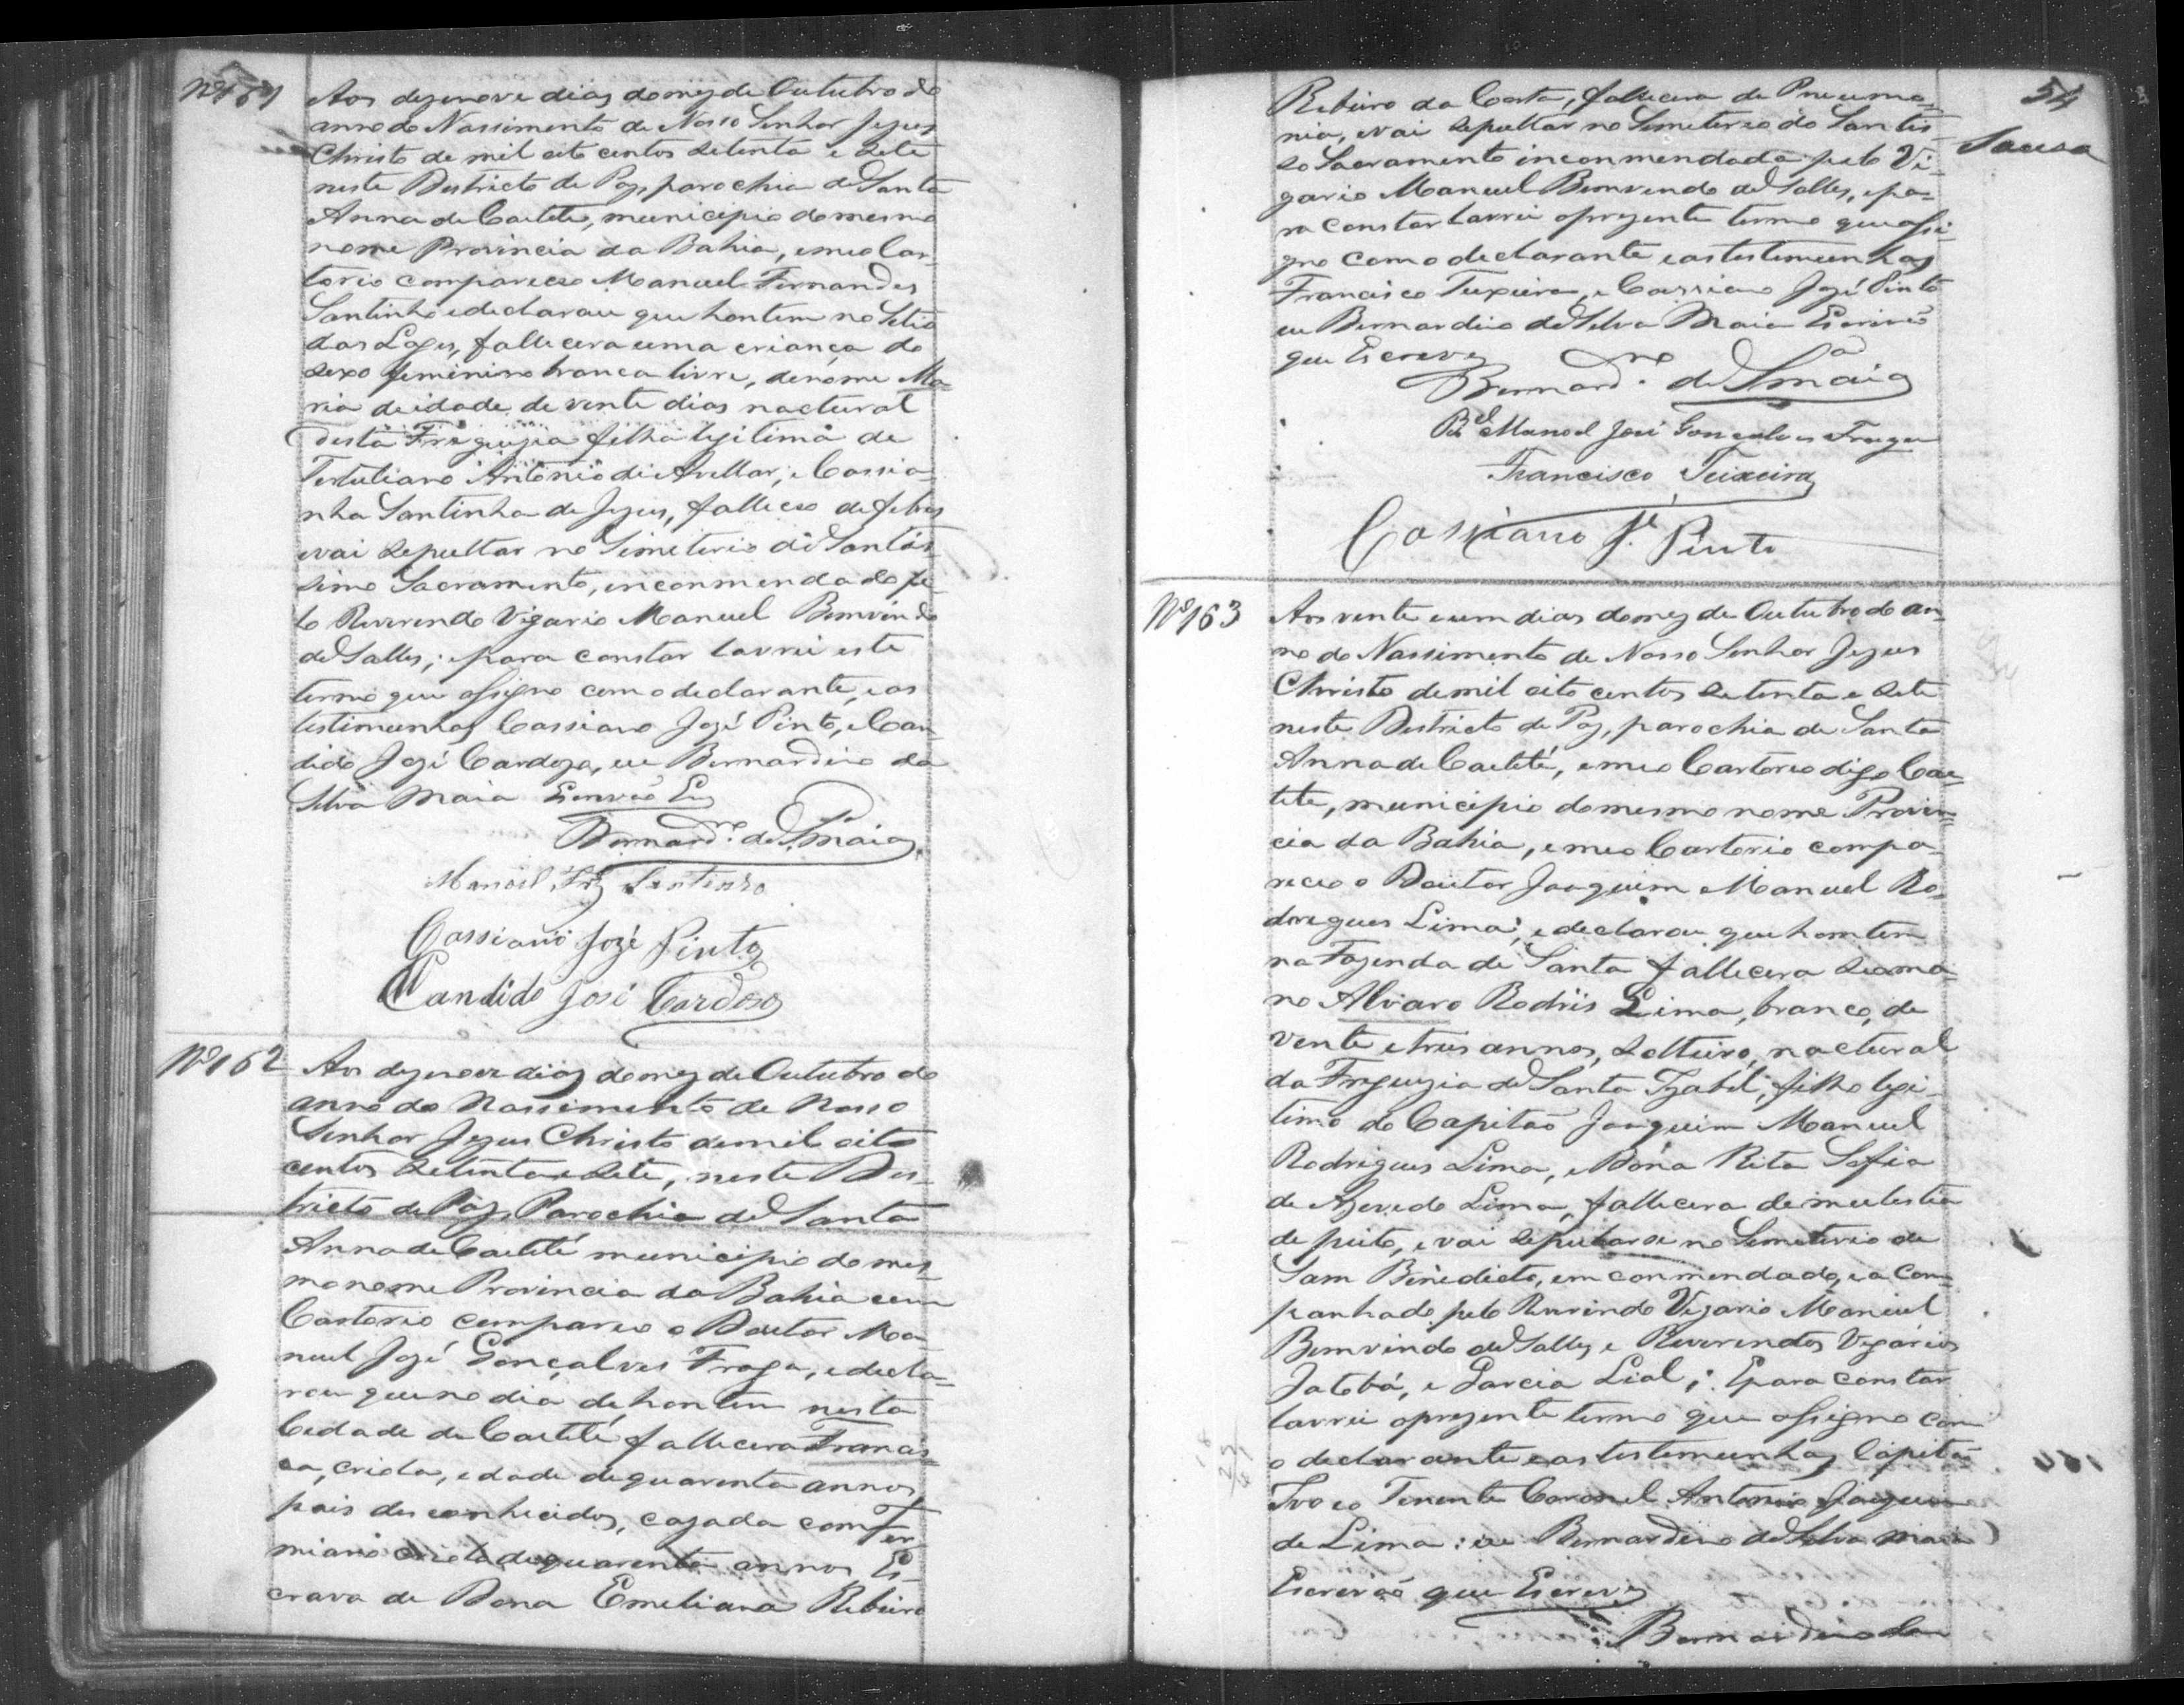 Nº 161
Aos dezenove dias do mez de Outubro do
anno do Nassimento de Nosso Senhor Jezus
Christo de mil oito centos setenta e sete
neste Destricto de Paz, parochia de Santa
Anna de Caetité, municipio do mesmo
nome Provincia da Bahia, e meo Car-
torio compareceo Manuel Fernandes
Santinho e declarou que hontem no Sitio
das Lages, fallecera uma criança do
sexo feminino branca livre, de nome Ma-
ria de idade de vente dias nactural
desta Freguezia filha legitima de
Tertuliano Antonio de Avellar, e Cassia-
nha Santinha de Jezus, falleceo de febres
e vai sepultar no Simeterio do Santis-
simo Sacramento, inconmendado pe-
lo Reverendo Vigario Manuel Bemvindo
de Salles; e para constar lavrei este
termo que assigno com o declarante, e as
testimunhas Cassiano Jozé Pinto, e Can-
dido Jozé Cardozo, eu Bernardino da
Silva Maia Escrivão Es
Bernardno. da Sa. Maia
Manoel Frz Santinho
Cassiano Jozé Pinto
Candido José Cardoso
Nº 162
Aos dezenove dias do mez de Outubro do
anno do Nassimento de Nosso
Senhor Jezus Christo de mil oito
centos setenta e sete, neste Des-
tricto de Paz, Parochia de Santa
Anna de Caetité municipio do mes-
mo nome Provincia da Bahia e em
Cartorio compareo o Doutor Ma-
nuel Jozé Gonçalves Fraga, e decla-
rou que no dia de hontem nesta
Cedade de Caetité fallecera Francis-
ca, criola, e dade de quarenta annos,
pais desconhecidos, cazada com Fer
miano criolo de quarenta annos, Es-
crava de Dona Emeliana Ribeiro
54
Sousa
Ribeiro da Costa, fallecera de Pneumo-
nia, e vai sepultar no Simeterio do Santis
so Sacramento inconmendada pelo Vi-
gario Manuel Bemvendo de Salles, e pa-
ra constar lavrei oprezente termo que assi-
gno com o declarante e as testemunhas
Francisco Teixeira, e Cassiano Jozé Pinto
eu Bernardino da Selva Maia Escrivão
que Escrevy
Bernardno. da Sa Maia
Bel Manoel José Gonçalves Fraga
Francisco Teixeira
Cassiano Jé. Pinto
Nº 163
Aos vente e um dias do mez de Outubro do an-
no do Nassimento de Nosso Senhor Jezus
Christo de mil oito centos setenta e sete
neste Destricto de Paz, parochia de Santa
Anna de Caetité, e meo Cartoreo digo Cae-
tite, municipio do mesmo nome Provin-
cia da Bahia, e meo Cartorio compa-
receo o Doutor Joaquim Manuel Ro-
dregues Lima, e declarou que hontem
na Fazenda de Santa fallecera seo ma-
no Alvaro Rodriis Lima, branco, de
vente e tres annos, solteiro, nactural
da Freguezia de Santa Izabel, filho legi-
timo do Capitão Joaquim Manuel
Rodrigues Lima, e Dona Rita Sofia
de Azevedo Lima, fallecera de mulestia
de peito, e vai sepultarse no Simeterio de
Sam Benedicto, em conmendado, e a com-
panhado pelo Reverindo Vigario Manuel
Bemvindo de Salles e Reverendos Vigarios
Jatobá, e Garcia Lial; E para constar
lavrei oprezente termo que assigno com
o declarante e as testemunhas Capitão
Ivo eo Tenente Coronel Antonio Joaquim
de Lima: eu Bernardino da Selva Maia
Escrivão que Escrevy
Bernardino da